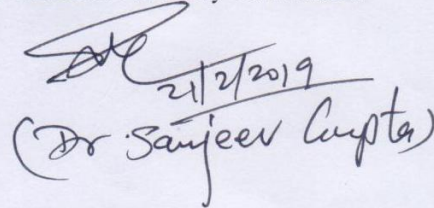 21/2/2019
(Dr. Sanjeev Gupta)